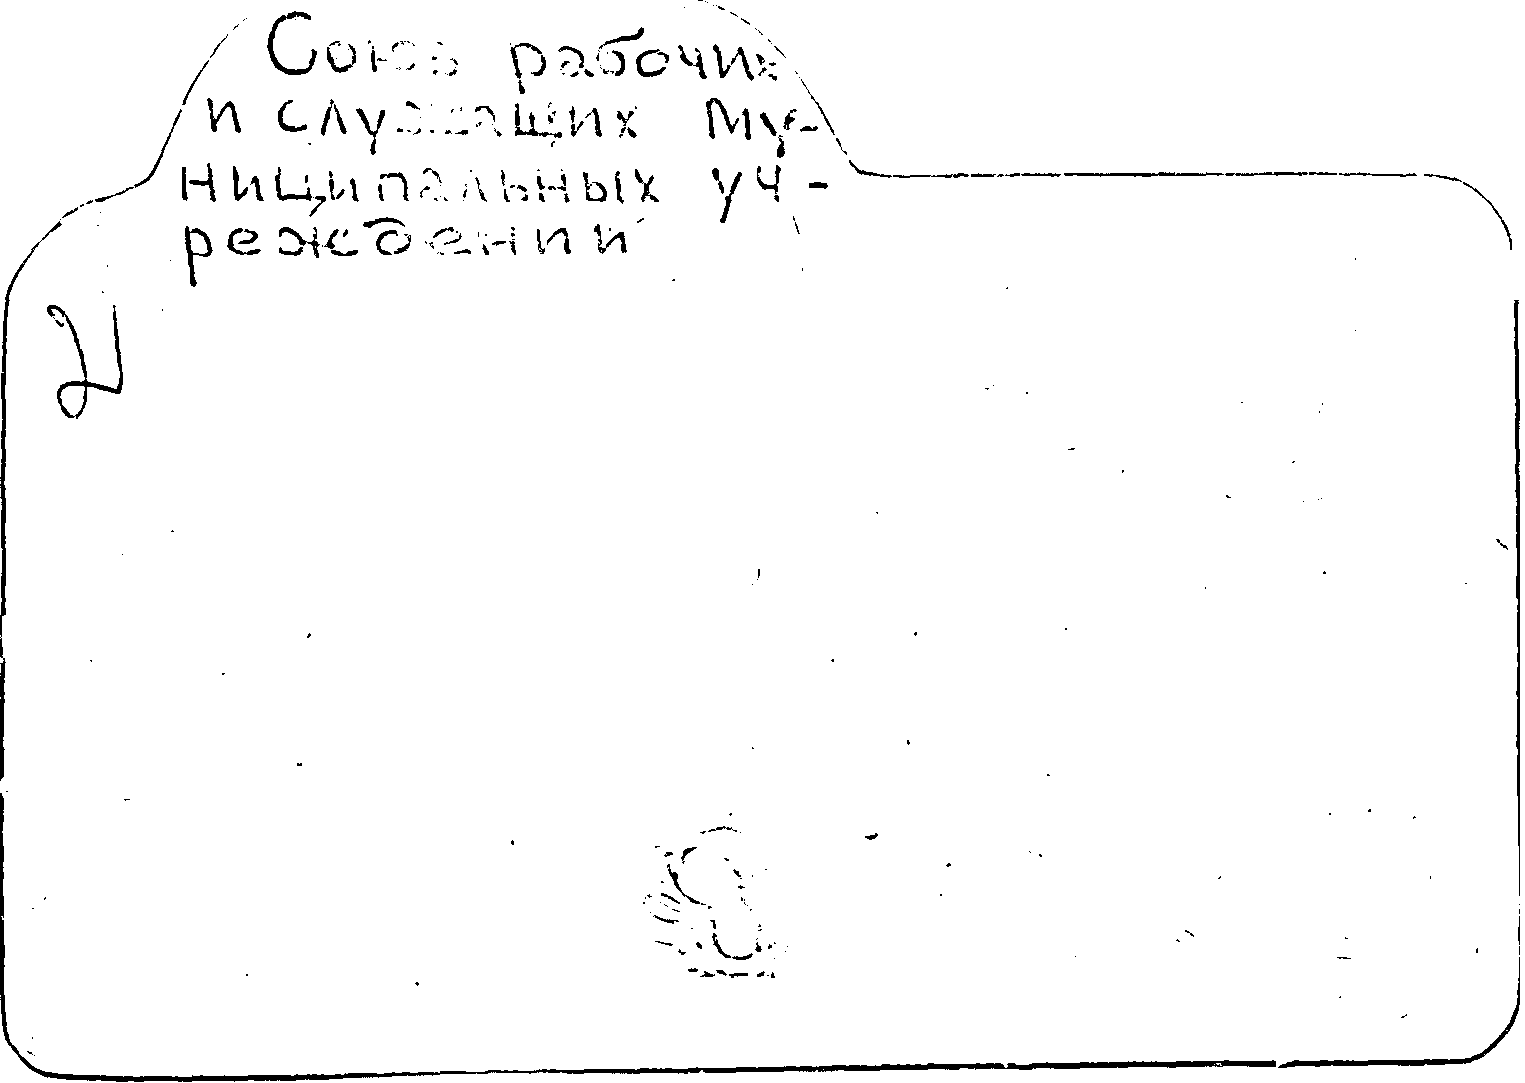 Союз рабочих
и служащих Му-
ниципальных уч-
реждений
21